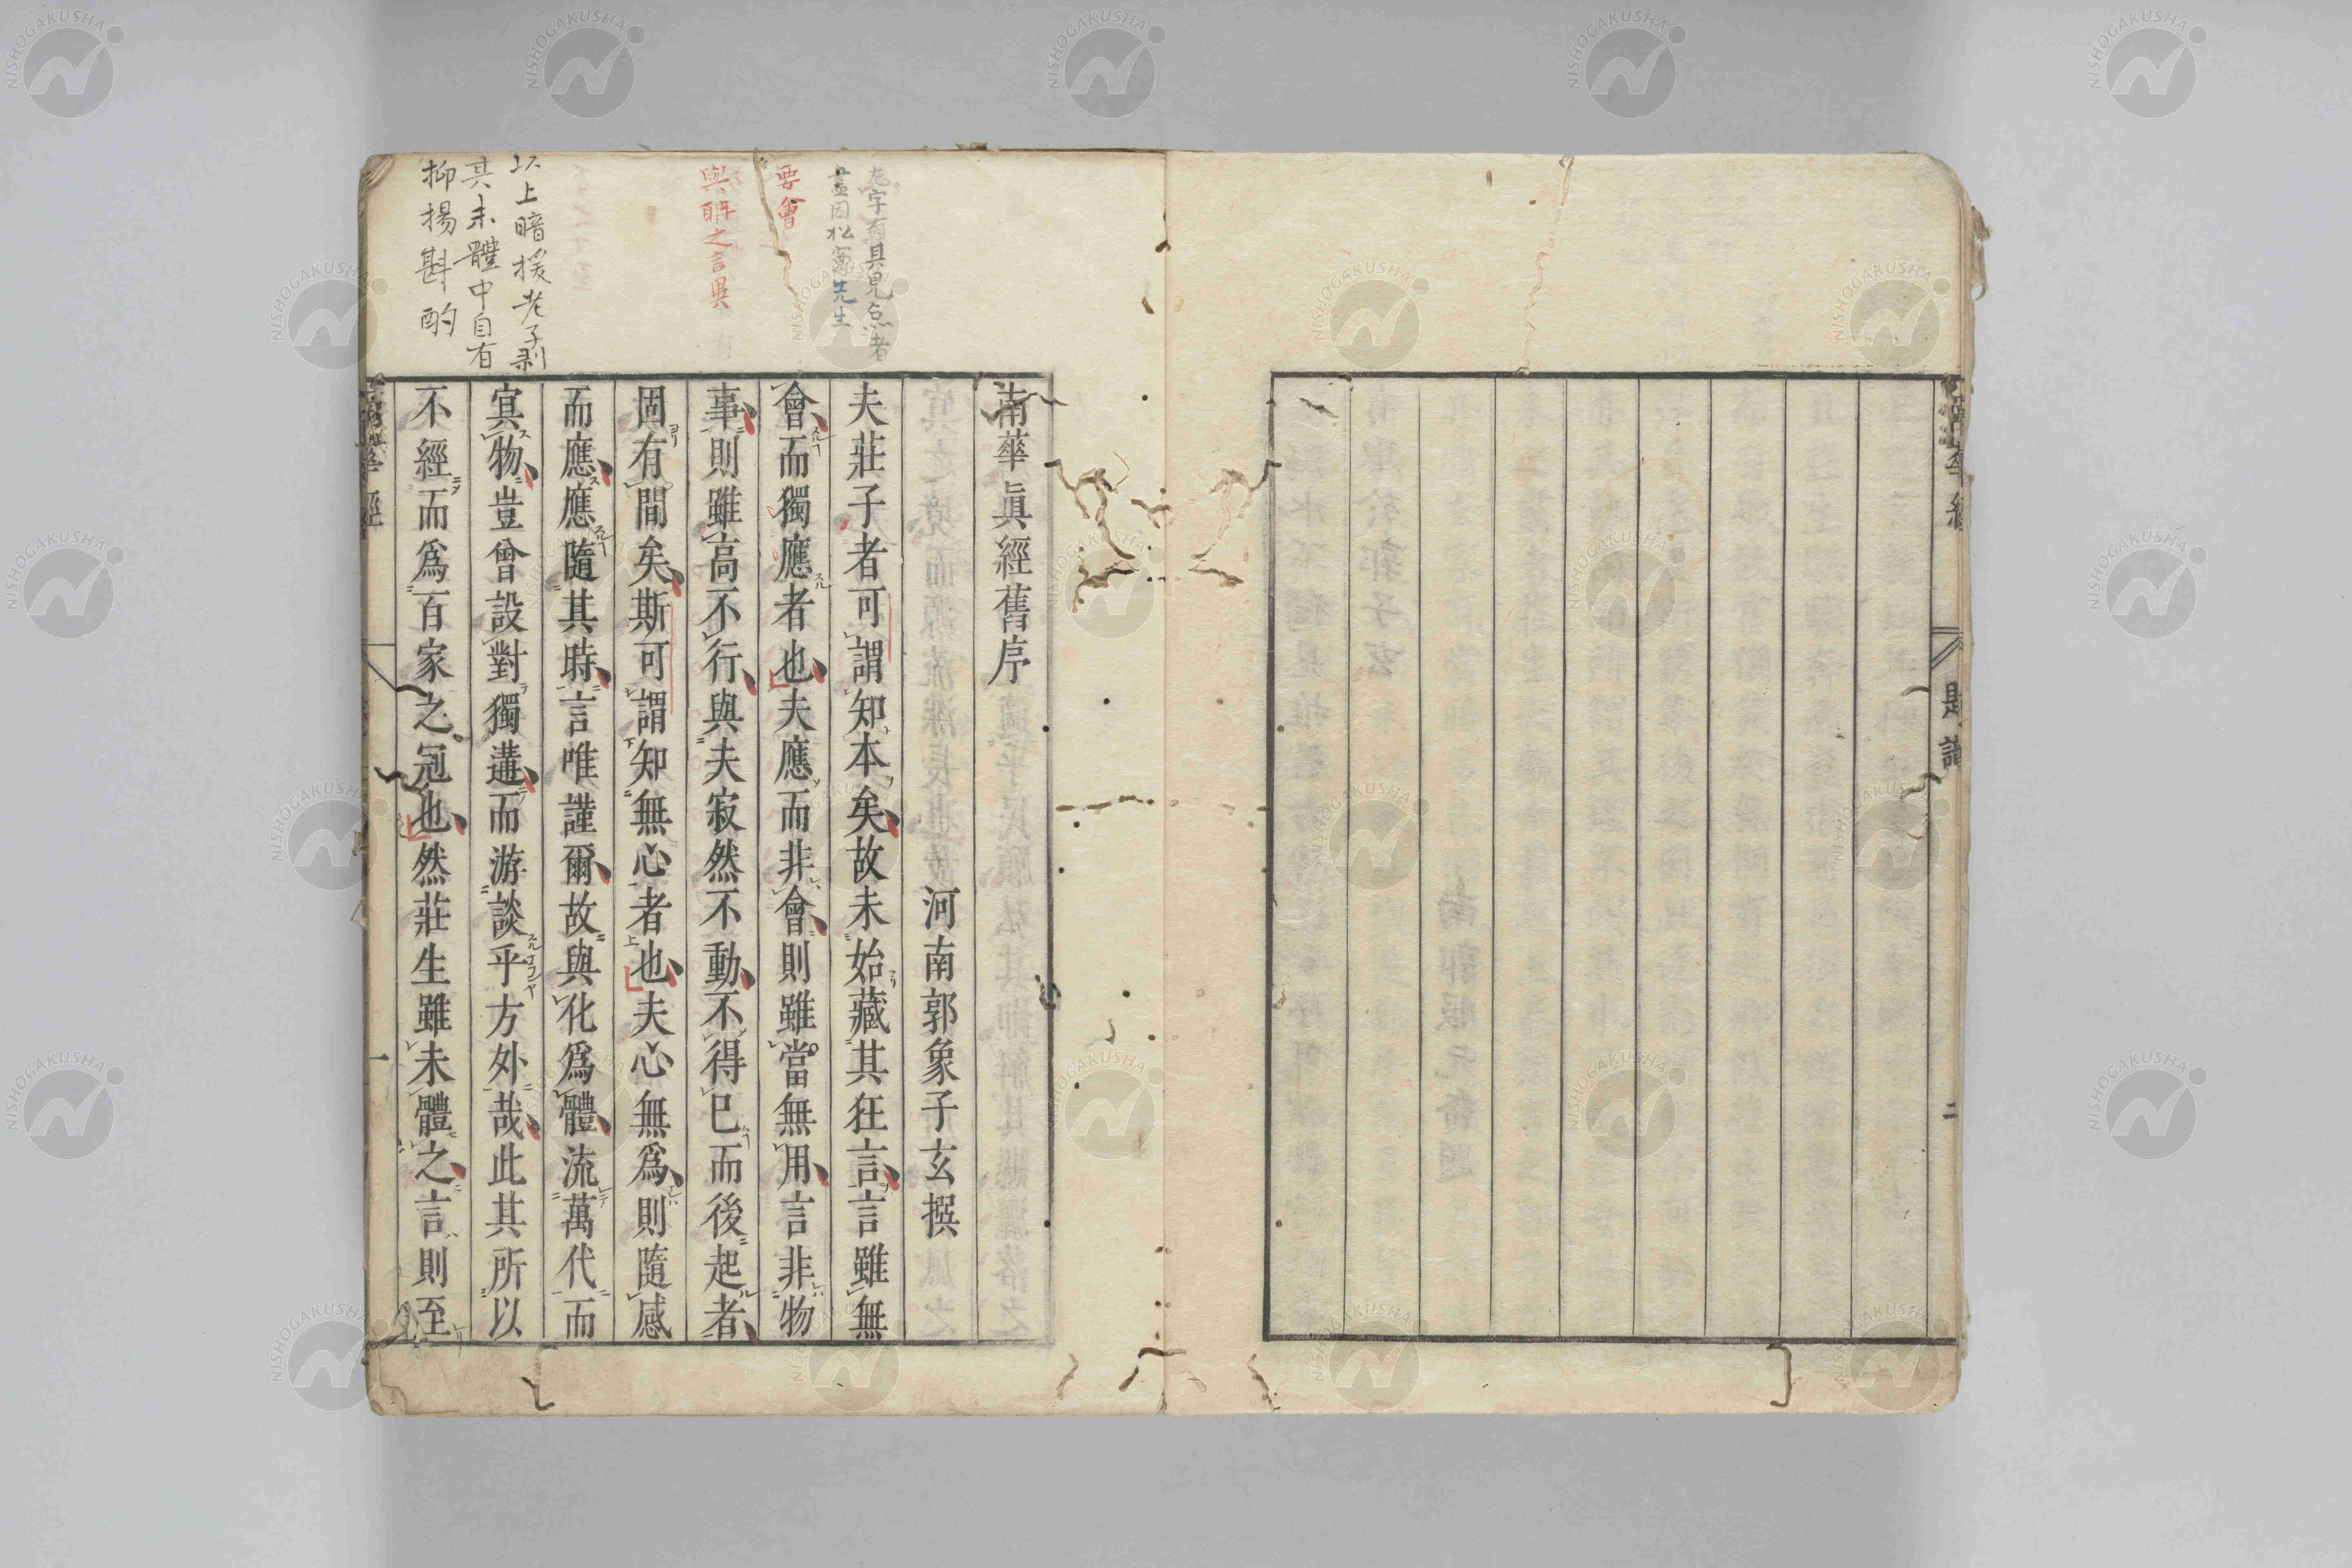 南華眞經舊序
河南郭象子玄撰
夫莊子者可謂知本矣故未始藏其狂言言雖無
會而獨應者也夫應而非會則雖當無用言非物
事則雖高不行與夫寂然不動不得已而後起者
固有間矣斯可謂知無心者也夫心無爲則隨感
而應應隨其時言唯謹爾故與化爲體流萬代而
冥物豈曾設對獨遘而游談乎方外哉此其所以
不經而爲百家之冠也然莊生雖未體之言則至
要會
與聃之言異
以上暗援老子剥
其未體中自有
抑揚斟酌
一
二
NISHOGAKUSHA